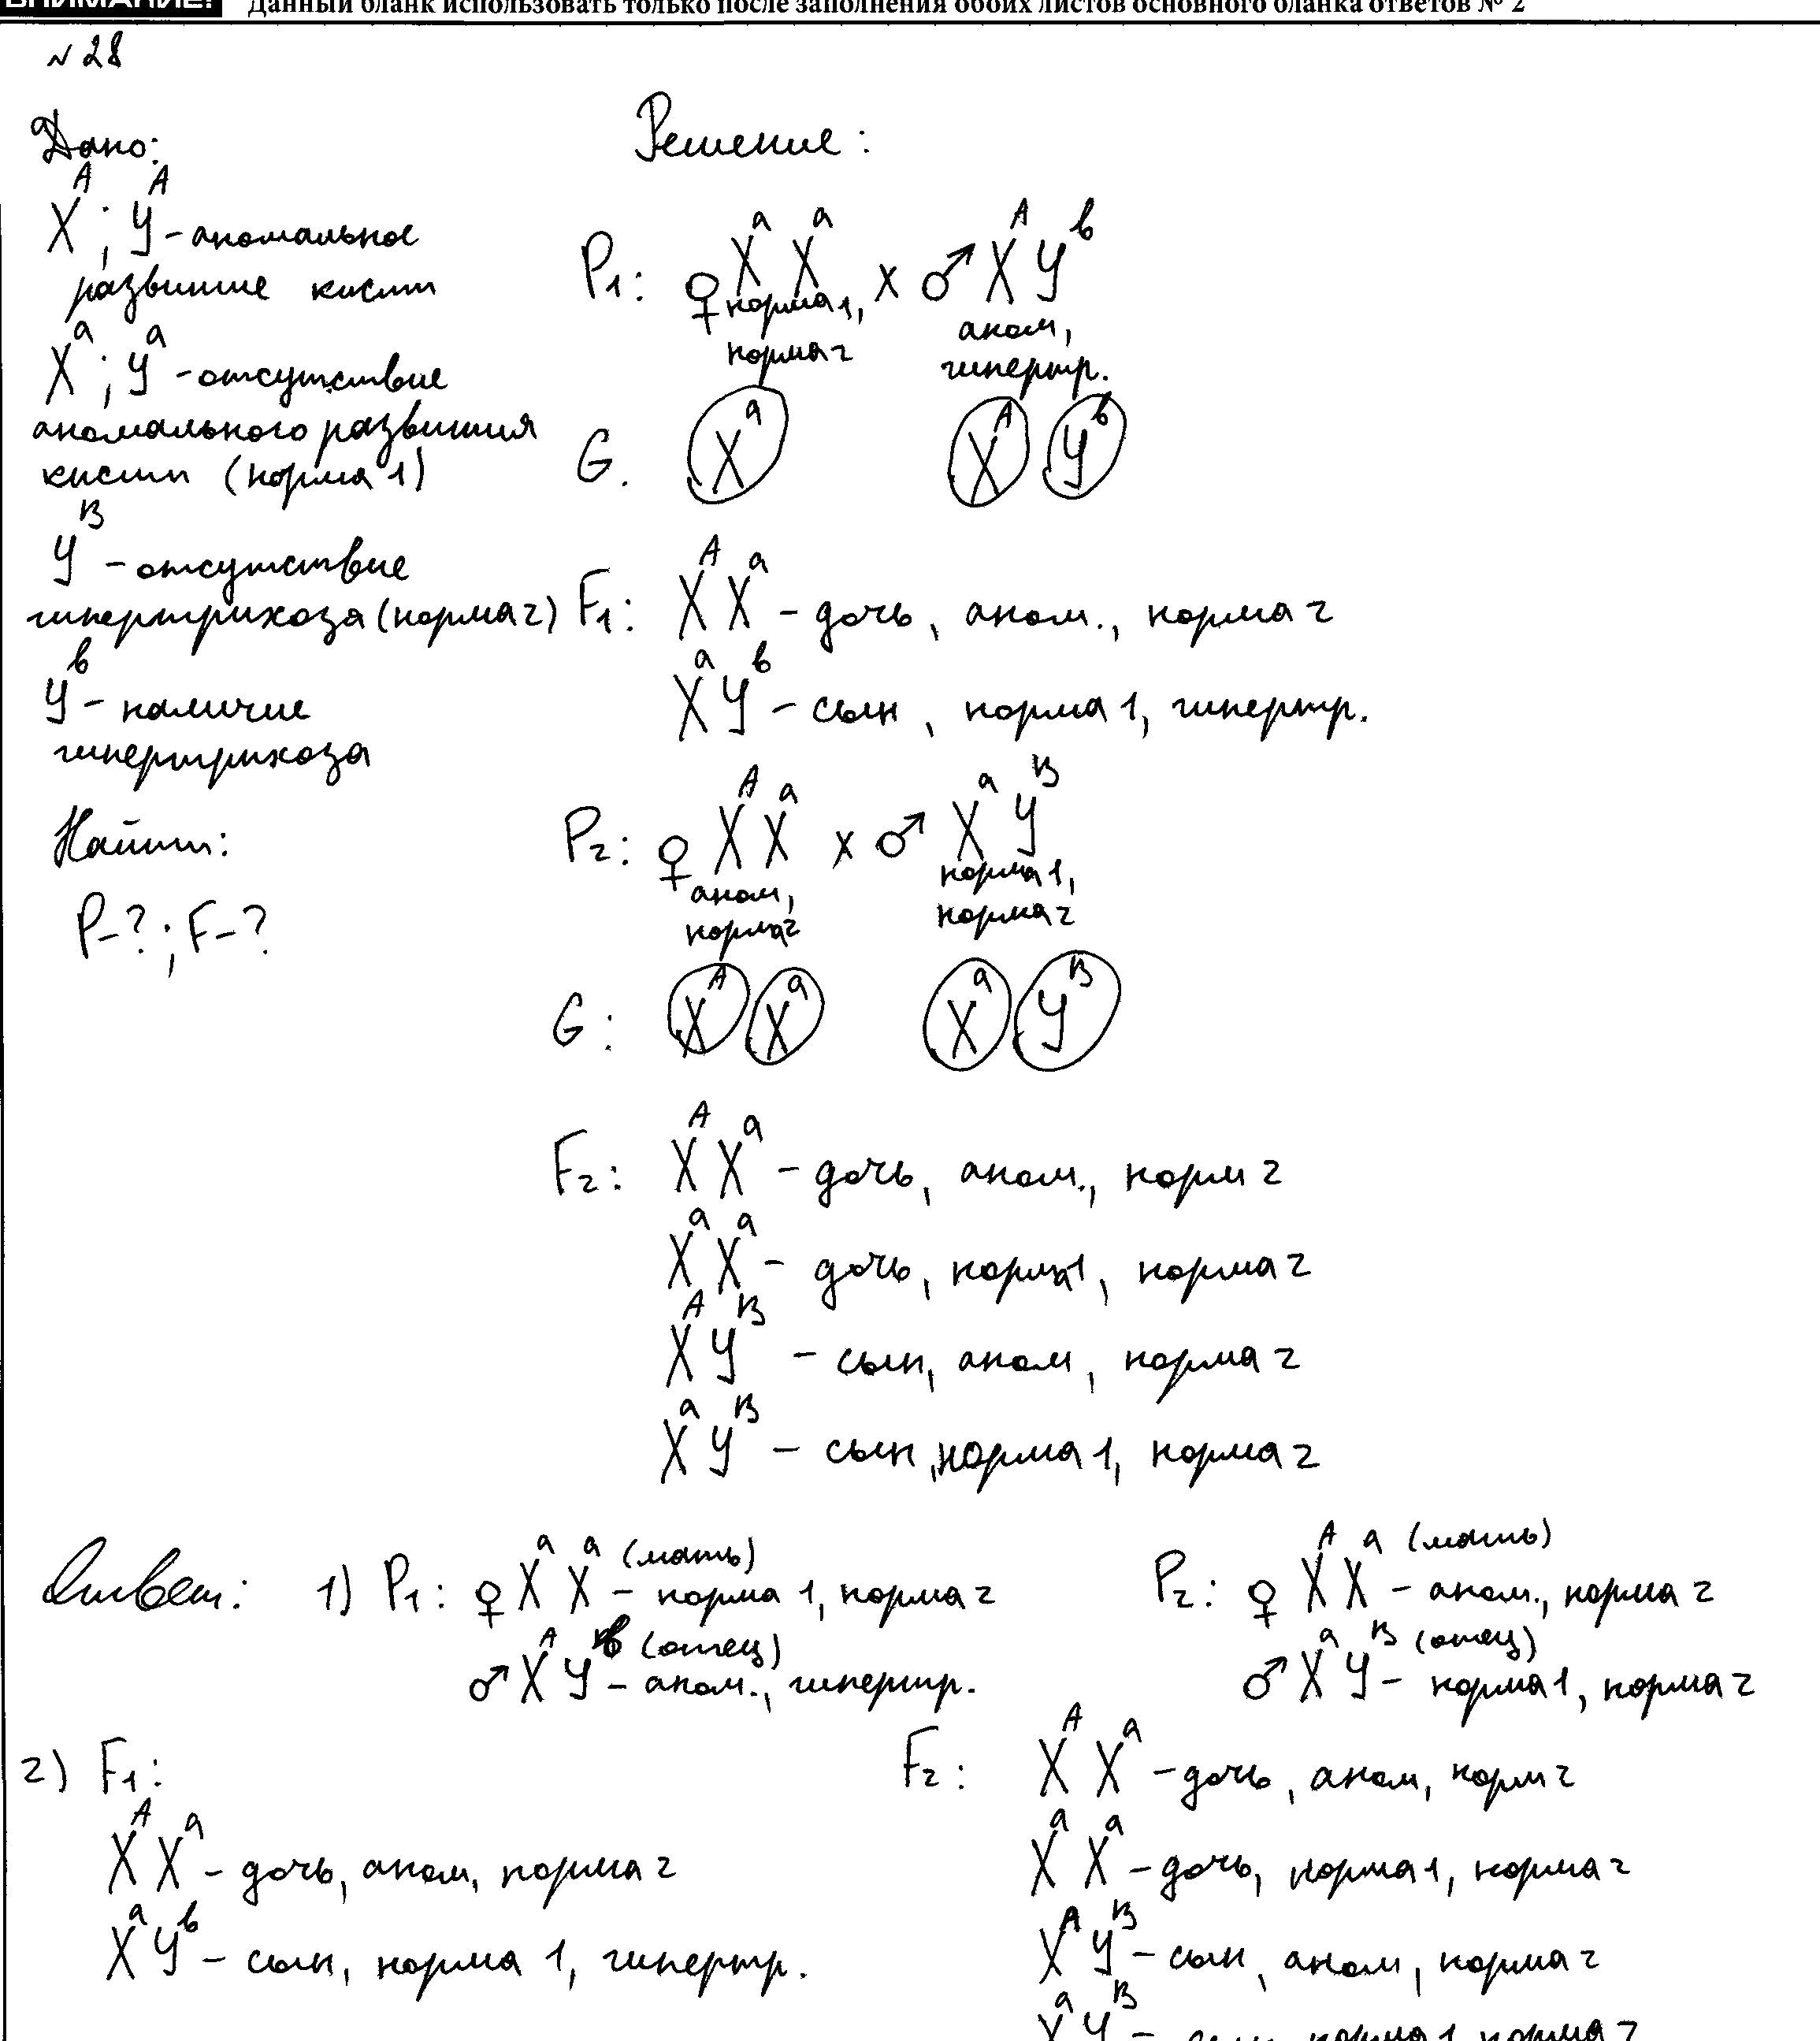 ВНИМАНИЕ! Данный бланк использовать только после заполнения обоих листов основного бланка ответов № 2
№28
Дано:
Решение:
Xᴬ; Yᴬ - аномальное
развитие кисти
Xᵃ; Yᵃ - отсутствие
аномального развития
кисти (норма 1)
Yᴮ - отсутствие
гипертрихоза (норма 2)
Yᵇ - наличие
гипертрихоза
Найти:
P-?; F-?
P₁: ♀ XᵃXᵃ x ♂ XᴬYᵇ
норма 1, аном,
норма 2 гипертр.
G. Xᵃ Xᴬ Yᵇ
F₁: XᴬXᵃ - дочь, аном., норма 2
XᵃYᵇ - сын, норма 1, гипертр.
P₂: ♀ XᴬXᵃ x ♂ XᵃYᴮ
аном, норма 1,
норма 2 норма 2
G: Xᴬ Xᵃ Xᵃ Yᴮ
F₂: XᴬXᵃ - дочь, аном., норм 2
XᵃXᵃ - дочь, норма 1, норма 2
XᴬYᴮ - сын, аном, норма 2
XᵃYᴮ - сын, норма 1, норма 2
Ответ: 1) P₁: ♀ XᵃXᵃ (мать) - норма 1, норма 2
♂ XᴬYᵇ (отец) - аном., гипертр.
P₂: ♀ XᴬXᵃ (мать) - аном., норма 2
♂ XᵃYᴮ (отец) - норма 1, норма 2
2) F₁:
XᴬXᵃ - дочь, аном, норма 2
XᵃYᵇ - сын, норма 1, гипертр.
F₂: XᴬXᵃ - дочь, аном, норм 2
XᵃXᵃ - дочь, норма 1, норма 2
XᴬYᴮ - сын, аном, норма 2
XᵃYᴮ - сын, норма 1, норма 2